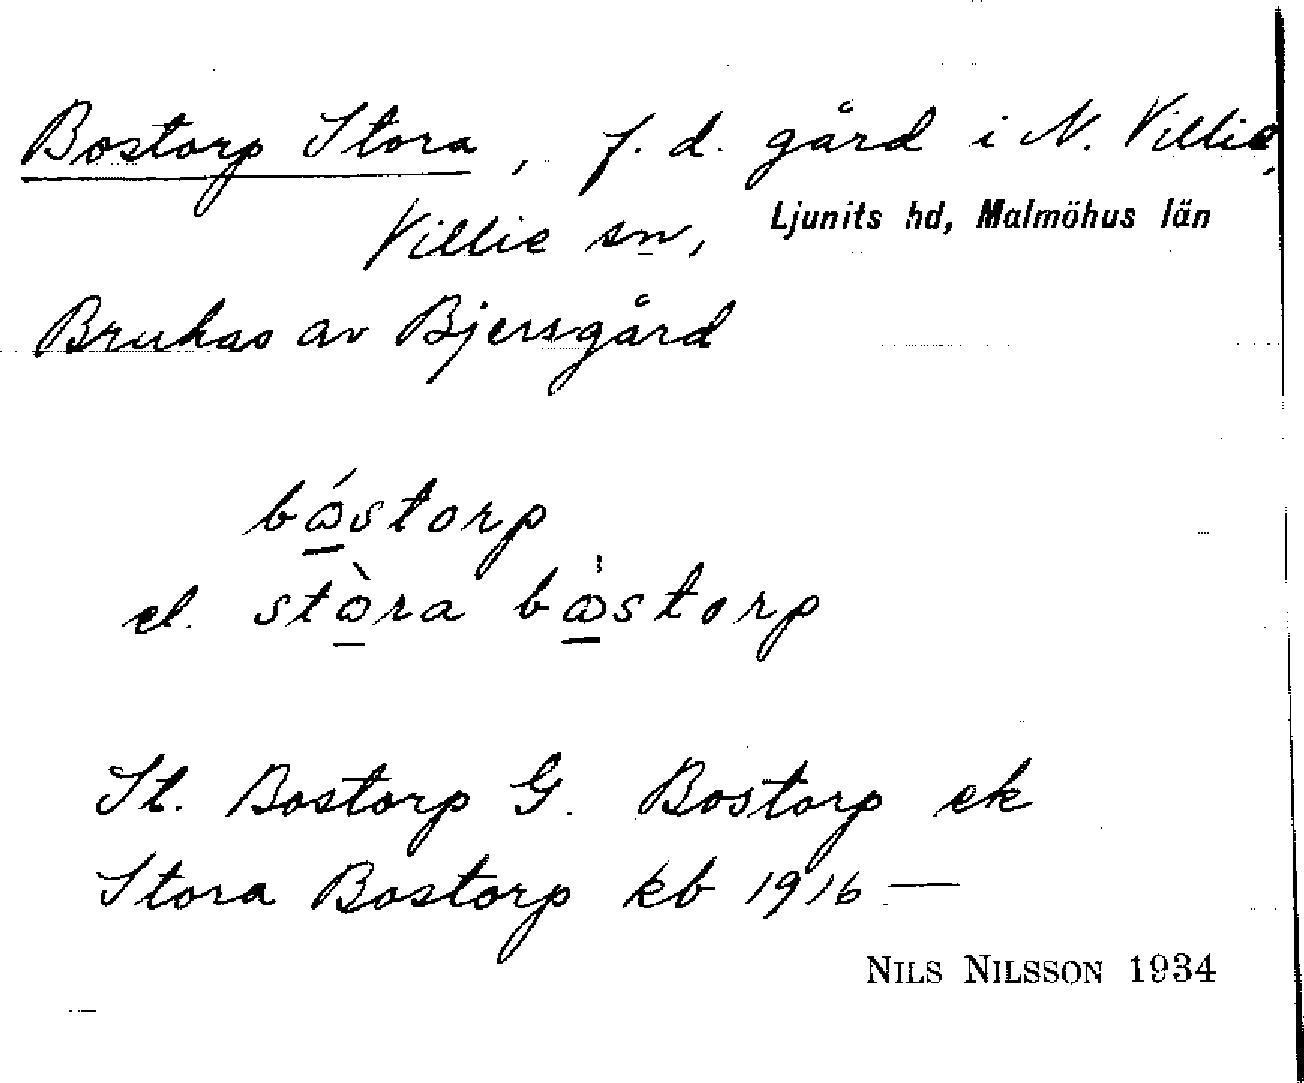 Bostorp Stora, f. d. gård i N. Villie,
Villie sn, Ljunits hd, Malmöhus län
Brukas av Bjersgård
bώ̲storp
el. stὼ̲ra bω̲̍storp
St. Bostorp G. Bostorp ek
Stora Bostorp kb 1916 —
NILS NILSSON 1934